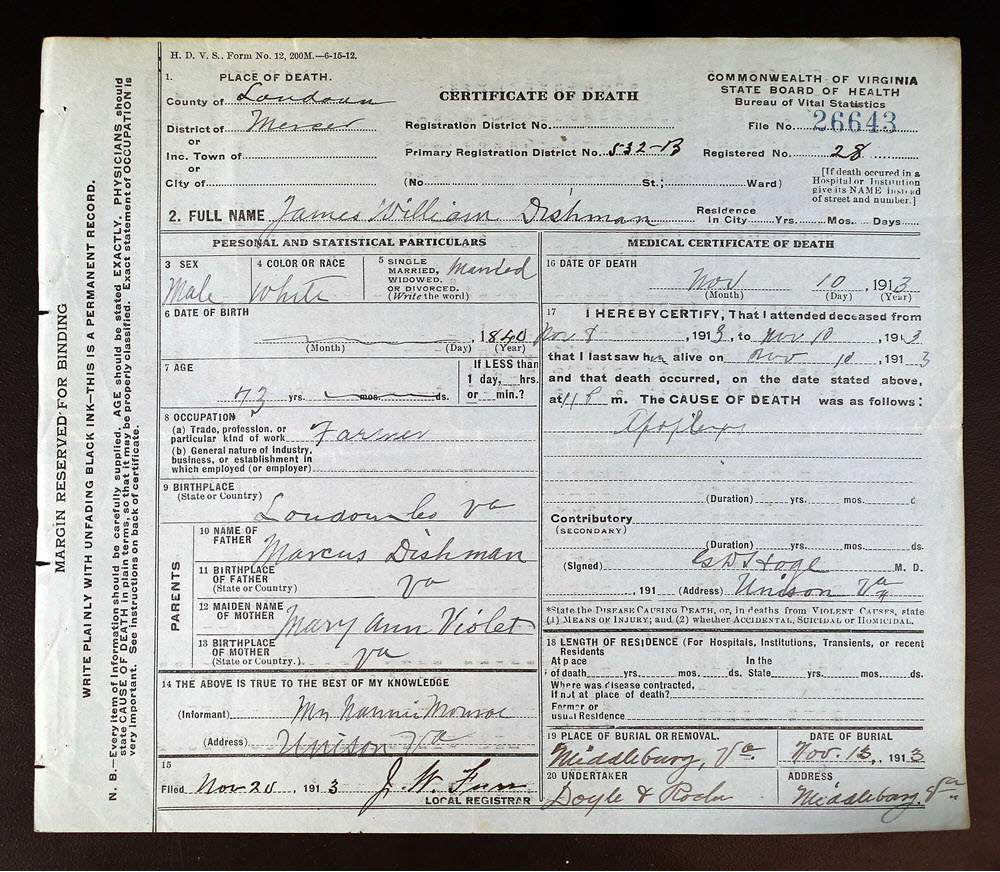 H. D. V. S.. Form No. 12, 200M.—6-15-12.
1. PLACE OF DEATH.
County of Loudoun
District of Mercer
or
Inc. Town of
or
City of
CERTIFICATE OF DEATH
Registration District No.
Primary Registration District No. 532-B
(No. St.; Ward)
COMMONWEALTH OF VIRGINIA
STATE BOARD OF HEALTH
Bureau of Vital Statistics
File No. 26643
Registered No. 28
[If death occured in a
Hospital or Institution
give its NAME instead
of street and number.]
2. FULL NAME James William Dishman
Residence
In City Yrs. Mos. Days
PERSONAL AND STATISTICAL PARTICULARS
3 SEX
Male
4 COLOR OR RACE
White
5 SINGLE
MARRIED,
WIDOWED.
OR DIVORCED.
(Write the word)
Married
6 DATE OF BIRTH
, 1840
(Month) (Day) (Year)
7 AGE
73 yrs. mos. ds.
If LESS than
1 day, hrs.
or min.?
8 OCCUPATION
(a) Trade, profession, or
particular kind of work Farmer
(b) General nature of Industry,
business, or establishment in
which employed (or employer)
9 BIRTHPLACE
(State or Country)
Loudoun Co Va
PARENTS
10 NAME OF
FATHER
Marcus Dishman
11 BIRTHPLACE
OF FATHER
(State or Country)
Va
12 MAIDEN NAME
OF MOTHER
Mary Ann Violet
13 BIRTHPLACE
OF MOTHER
(State or Country.)
Va
14 THE ABOVE IS TRUE TO THE BEST OF MY KNOWLEDGE
(Informant) Nannie Monroe
(Address) Unison Va
15
Filed Nov 20, 1913 J. W. Furr
LOCAL REGISTRAR
MEDICAL CERTIFICATE OF DEATH
16 DATE OF DEATH
Nov 10, 1913
(Month) (Day) (Year)
17 I HEREBY CERTIFY, That I attended deceased from
Nov 8, 1913, to Nov 10, 1913
that I last saw him alive on Nov 10, 1913
and that death occurred, on the date stated above,
at 11 P m. The CAUSE OF DEATH was as follows:
Apoplexy
(Duration) yrs. mos. d
Contributory
(SECONDARY)
(Duration) yrs. mos. ds.
(Signed) Hoge M. D.
, 191 (Address) Unison Va
*State the DISEASE CAUSING DEATH, or, in deaths from VIOLENT CAUSES, state
(1) MEANS OF INJURY; and (2) whether ACCIDENTAL, SUICIDAL or HOMICIDAL.
18 LENGTH OF RESIDENCE (For Hospitals, Institutions, Transients, or recent
Residents
At place In the
of death yrs. mos. ds. State yrs. mos. ds.
Where was disease contracted,
If not at place of death?
Former or
usual Residence
19 PLACE OF BURIAL OR REMOVAL.
Middleburg, Va.
DATE OF BURIAL
Nov. 13, 1913
20 UNDERTAKER
Doyle &
ADDRESS
Middleburg, Va
MARGIN RESERVED FOR BINDING
WRITE PLAINLY WITH UNFADING BLACK INK—THIS IS A PERMANENT RECORD.
N. B.—Every item of Information should be carefully supplied. AGE should be stated EXACTLY. PHYSICIANS should
state CAUSE OF DEATH in plain terms, so that it may be properly classified. Exact statement of OCCUPATION is
very important. See instructions on back of certificate.